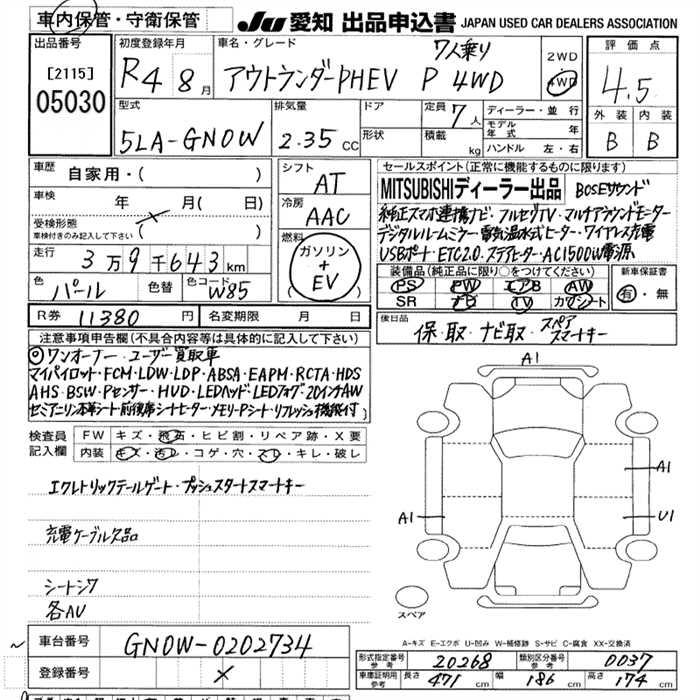 車内保管・守衛保管 JU 愛知 出品申込書 JAPAN USED CAR DEALERS ASSOCIATION
出品番号 初度登録年月 車名・グレード 7人乗り 2WD 評価点
[2115] R4 8月 アウトランダーPHEV P 4WD 4WD 4.5
05030 型式 排気量 ドア 定員 7人 ディーラー・並行 外装 内装
5LA-GN0W 2.35 CC 形状 積載 kg モデル年式 年 B B
ハンドル 左・右
車歴 自家用・( ) シフト AT セールスポイント(正常に機能するものに限ります)
車検 年 月( 日) 冷房 AAC MITSUBISHIディーラー出品 BOSEサウンド
受検形態 車検付きのみ記入して下さい ( ) 燃料 純正スマホ連携ナビ・フルセグTV・マルチアラウンドモニター
走行 3万9千643km ガソリン+EV デジタルルームミラー・電気温水式ヒーター・ワイヤレス充電
色 パール 色替 色コード W85 USBポート・ETC2.0・ステアヒーター・AC1500W電源
装備品(純正品に限り○をつけてください) 新車保証書
PS PW エアB AW 有・無
SR ナビ TV カワシート
R券 11380円 名変期限 月 日 後日品 保・取・ナビ取・スペアスマーキー
注意事項申告欄(不具合内容等は具体的に記入して下さい)
◎ワンオーナー・ユーザー買取車
マイパイロット・FCM・LDW・LDP・ABSA・EAPM・RCTA・HDS
AHS・BSW・Pセンサー・HUD・LEDヘッド・LEDフォグ・20インチAW
セミアニリン本革シート・前後席シートヒーター・メモリーPシート・リフレッシュ機能付
検査員記入欄 FW キズ・飛石・ヒビ割・リペア跡・X要
内装 キズ・汚レ・コゲ・穴・スレ・キレ・破レ
エレクトリックテールゲート・プッシュスタートスマートキー
充電ケーブル欠品
シートシワ
各AU
A1
A1
A1 U1
スペア
A-キズ E-エクボ U-凹み W-補修跡 S-サビ C-腐食 XX-交換済
車台番号 GN0W-0202734 形式指定番号 参考 20268 類別区分番号 参考 0037
登録番号 × 車体証明用 参考 長さ 471cm 幅 186cm 高さ 174cm